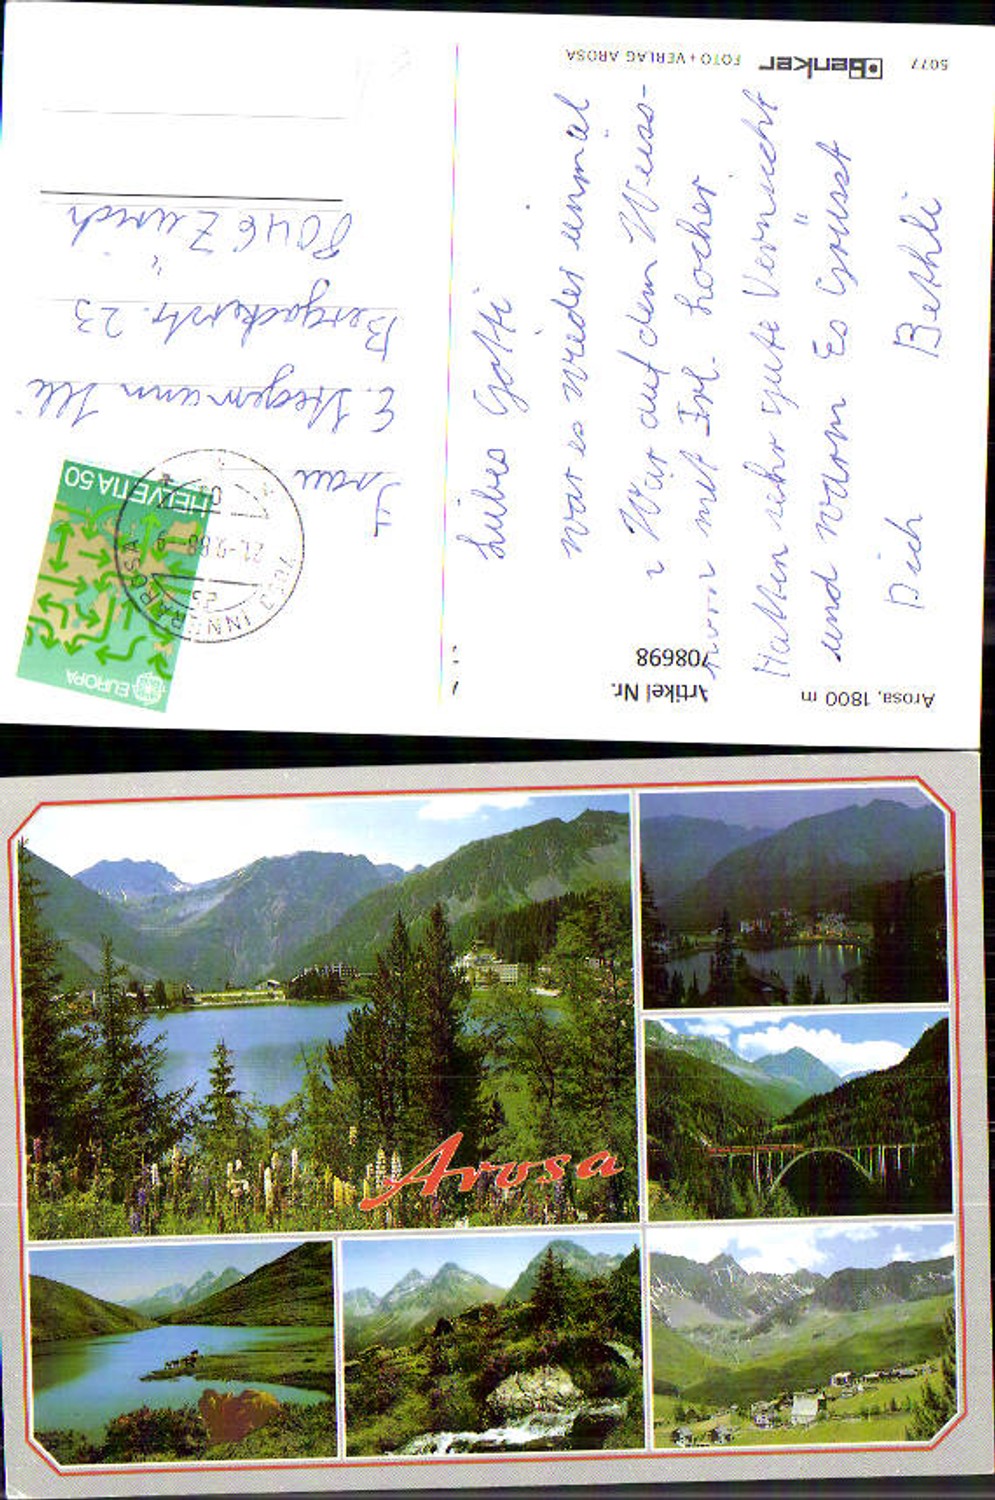 5077
Denker
FOTO + VERLAG AROSA
Liebes Gotti
War es wieder einmal
Wir auf dem Weiss-
horn mit Frl. Locher
Hatten sehr gute Vernsicht
und warm Es Grüsst
Dich
Bethli
Arosa, 1800 m
Artikel Nr.
708698
EUROPA
HELVETIA 50
7050 INNERAROSA
21.-9.88-9
Frau
E. Stegemann Illi
Bergackerstr. 23
8046 Zürich
Arosa